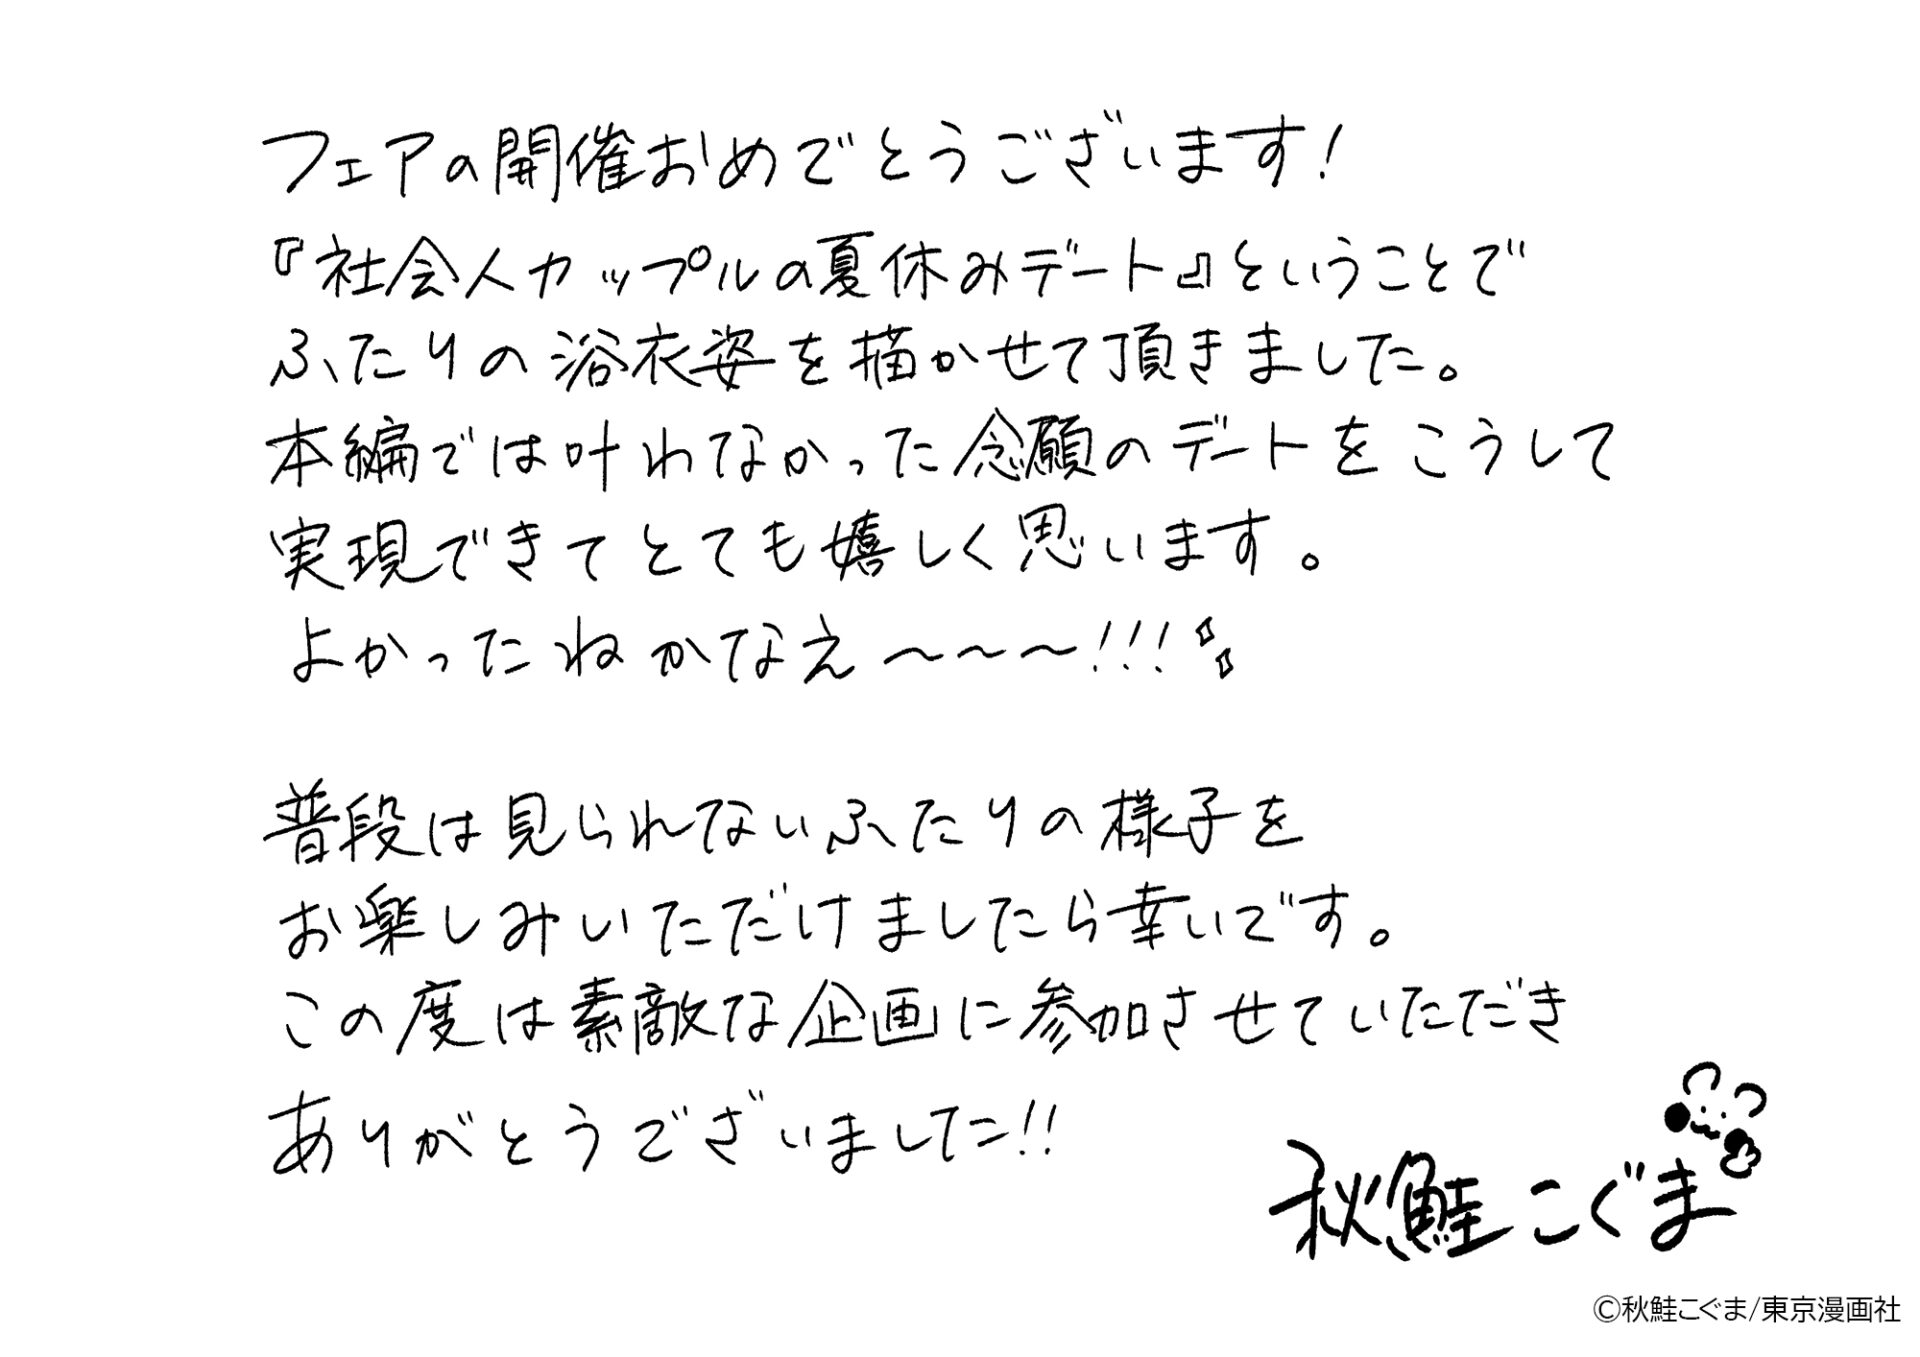 フェアの開催おめでとうございます！
『社会人カップルの夏休みデート』ということで
ふたりの浴衣姿を描かせて頂きました。
本編では叶わなかった念願のデートをこうして
実現できてとても嬉しく思います。
よかったねかなえ〜〜〜!!!
普段は見られないふたりの様子を
お楽しみいただけましたら幸いです。
この度は素敵な企画に参加させていただき
ありがとうございました!!
秋鮭こぐま
©秋鮭こぐま/東京漫画社